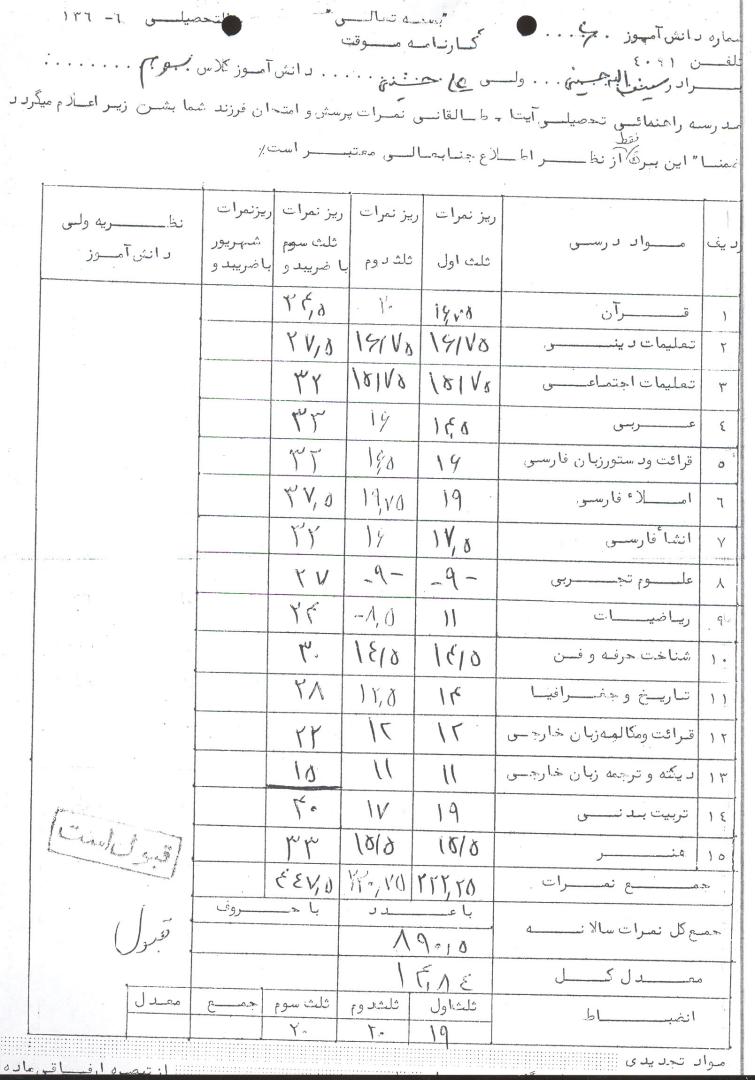 "بسمه تعالی"
التحصیلی ۶-۱۳۶
کارنامه موقت
شماره دانش‌آموز
تلفن ۴۰۹۱
برادر ... ولی ... دانش‌آموز کلاس سوم
مدرسه راهنمائی تحصیلی آیتا... طالقانی نمرات پرسش و امتحان فرزند شما بشرح زیر اعلام میگردد
ضمنا" این برگ فقط از نظر اطلاع جنابعالی معتبر است.
ردیف | مواد درسی | ریز نمرات ثلث اول | ریز نمرات ثلث دوم | ریز نمرات ثلث سوم با ضریب دو | ریز نمرات شهریور با ضریب دو | نظریه ولی دانش‌آموز
۱ | قرآن | ۱۶,۷۵ | ۲۰ | ۳۴,۵
۲ | تعلیمات دینی | ۱۶/۷۵ | ۱۶/۷۵ | ۲۷,۵
۳ | تعلیمات اجتماعی | ۱۵/۷۵ | ۱۵/۷۵ | ۳۲
۴ | عربی | ۱۴,۵ | ۱۶ | ۳۳
۵ | قرائت و دستور زبان فارسی | ۱۶ | ۱۶,۵ | ۳۳
۶ | املاء فارسی | ۱۹ | ۱۹,۷۵ | ۳۷,۵
۷ | انشاء فارسی | ۱۷,۵ | ۱۶ | ۳۲
۸ | علوم تجربی | -۹- | -۹- | ۲۷
۹ | ریاضیات | ۱۱ | -۸,۵ | ۲۴
۱۰ | شناخت حرفه و فن | ۱۴/۵ | ۱۴/۵ | ۳۰
۱۱ | تاریخ و جغرافیا | ۱۴ | ۱۲,۵ | ۲۸
۱۲ | قرائت و مکالمه زبان خارجی | ۱۲ | ۱۲ | ۲۲
۱۳ | دیکته و ترجمه زبان خارجی | ۱۱ | ۱۱ | ۱۵
۱۴ | تربیت بدنی | ۱۹ | ۱۷ | ۴۰
۱۵ | هنر | ۱۵/۵ | ۱۵/۵ | ۳۳
جمع نمرات | ۲۲۲,۲۵ | ۲۲۰,۷۵ | ۴۴۷,۵
قبول است
جمع کل نمرات سالانه | با عدد | با حروف
۸۹۰,۵
قبول
معدل کل | ۱۴,۸۴
انضباط | ثلث اول | ثلث دوم | ثلث سوم | جمع | معدل
۱۹ | ۲۰ | ۲۰
مواد تجدیدی
از تبصره ارفاقی ماده